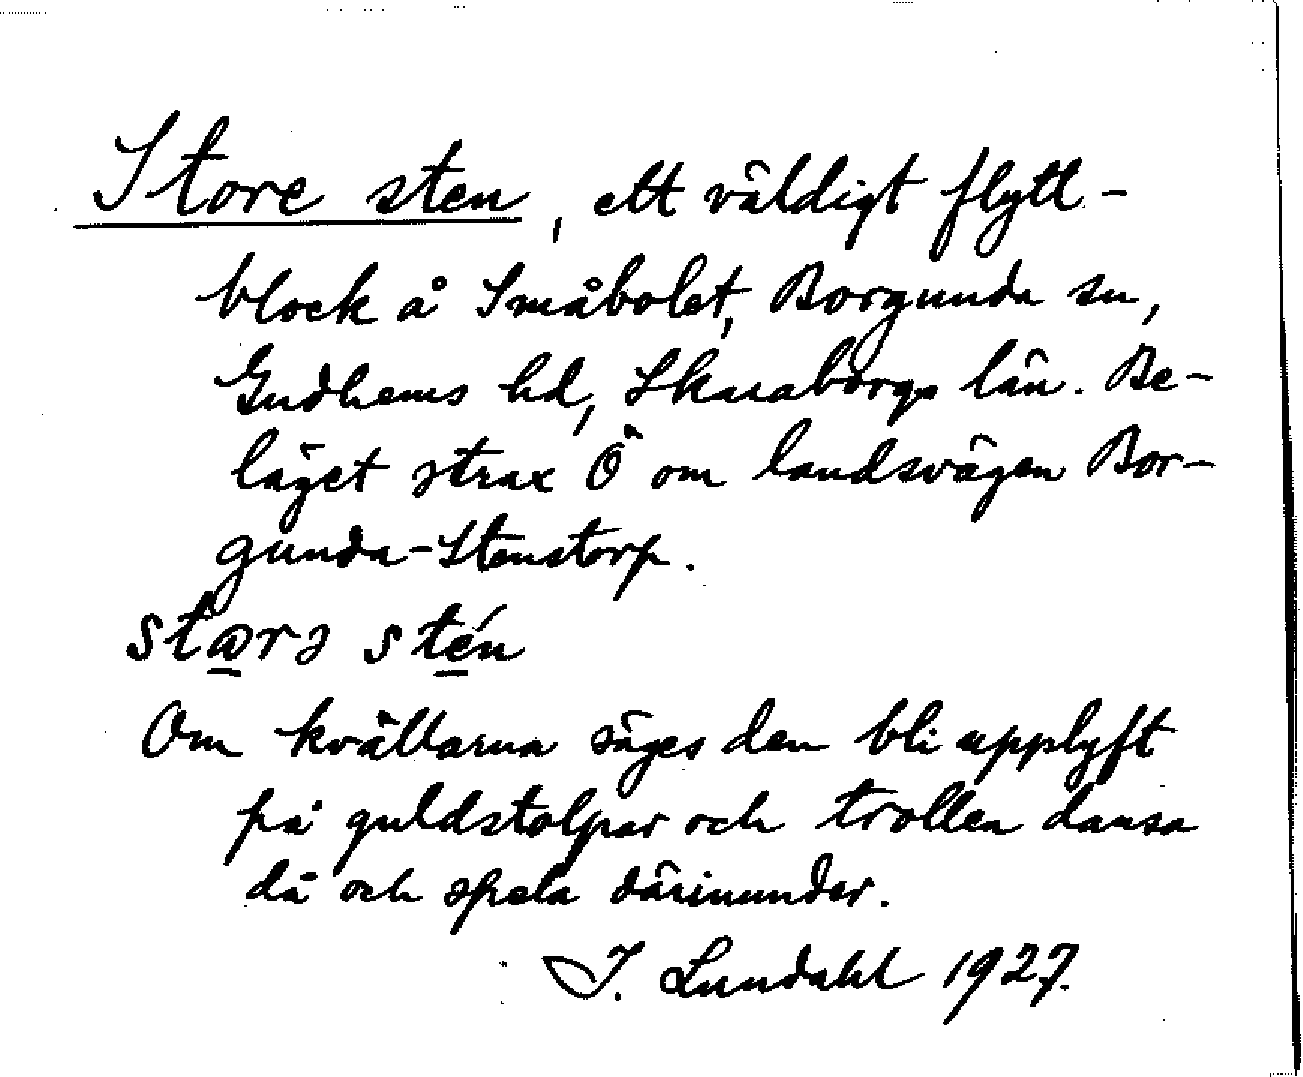 Store sten, ett väldigt flytt-
block å Småbolet, Borgunda sn,
Gudhems hd, Skaraborgs län. Be-
läget strax Ö om landsvägen Bor-
gunda-Stenstorp.
stɷrə stén
Om kvällarna säges den bli upplyft
på guldstolpar och trollen dansa
då och spela därinunder.
I. Lundahl 1927.